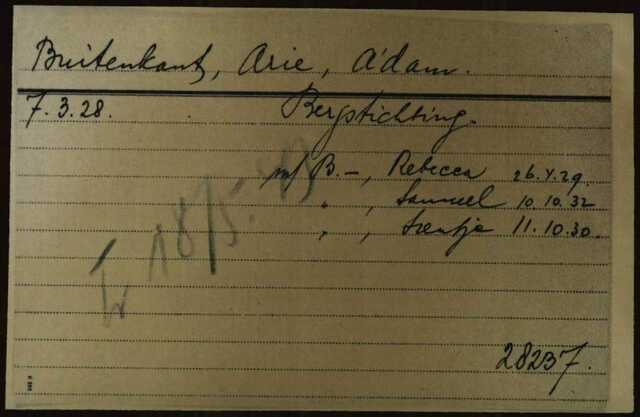 Buitenkant, Arie, A'dam.
7.3.28. Bergstichting.
m/ B.-, Rebecca 26.4.29.
" , Samuel 10.10.32
" , Leentje 11.10.30.
18/5.43
28237.